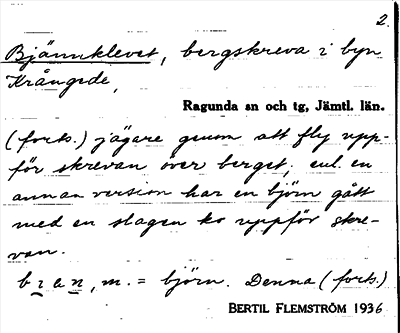 2.
Bjännklevet, bergskreva i byn
Krångede,
Ragunda sn och tg, Jämtl. län.
(forts.) jägare genom att fly upp-
för skrevan över berget; enl. en
annan version har en björn gått
med en slagen ko uppför skre-
van.
bɩan, m. = björn. Denna (forts.)
BERTIL FLEMSTRÖM 1936